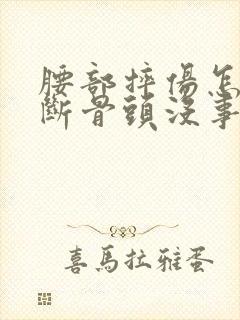 腰部摔傷怎
斷骨頭沒事
喜馬拉雅蛋